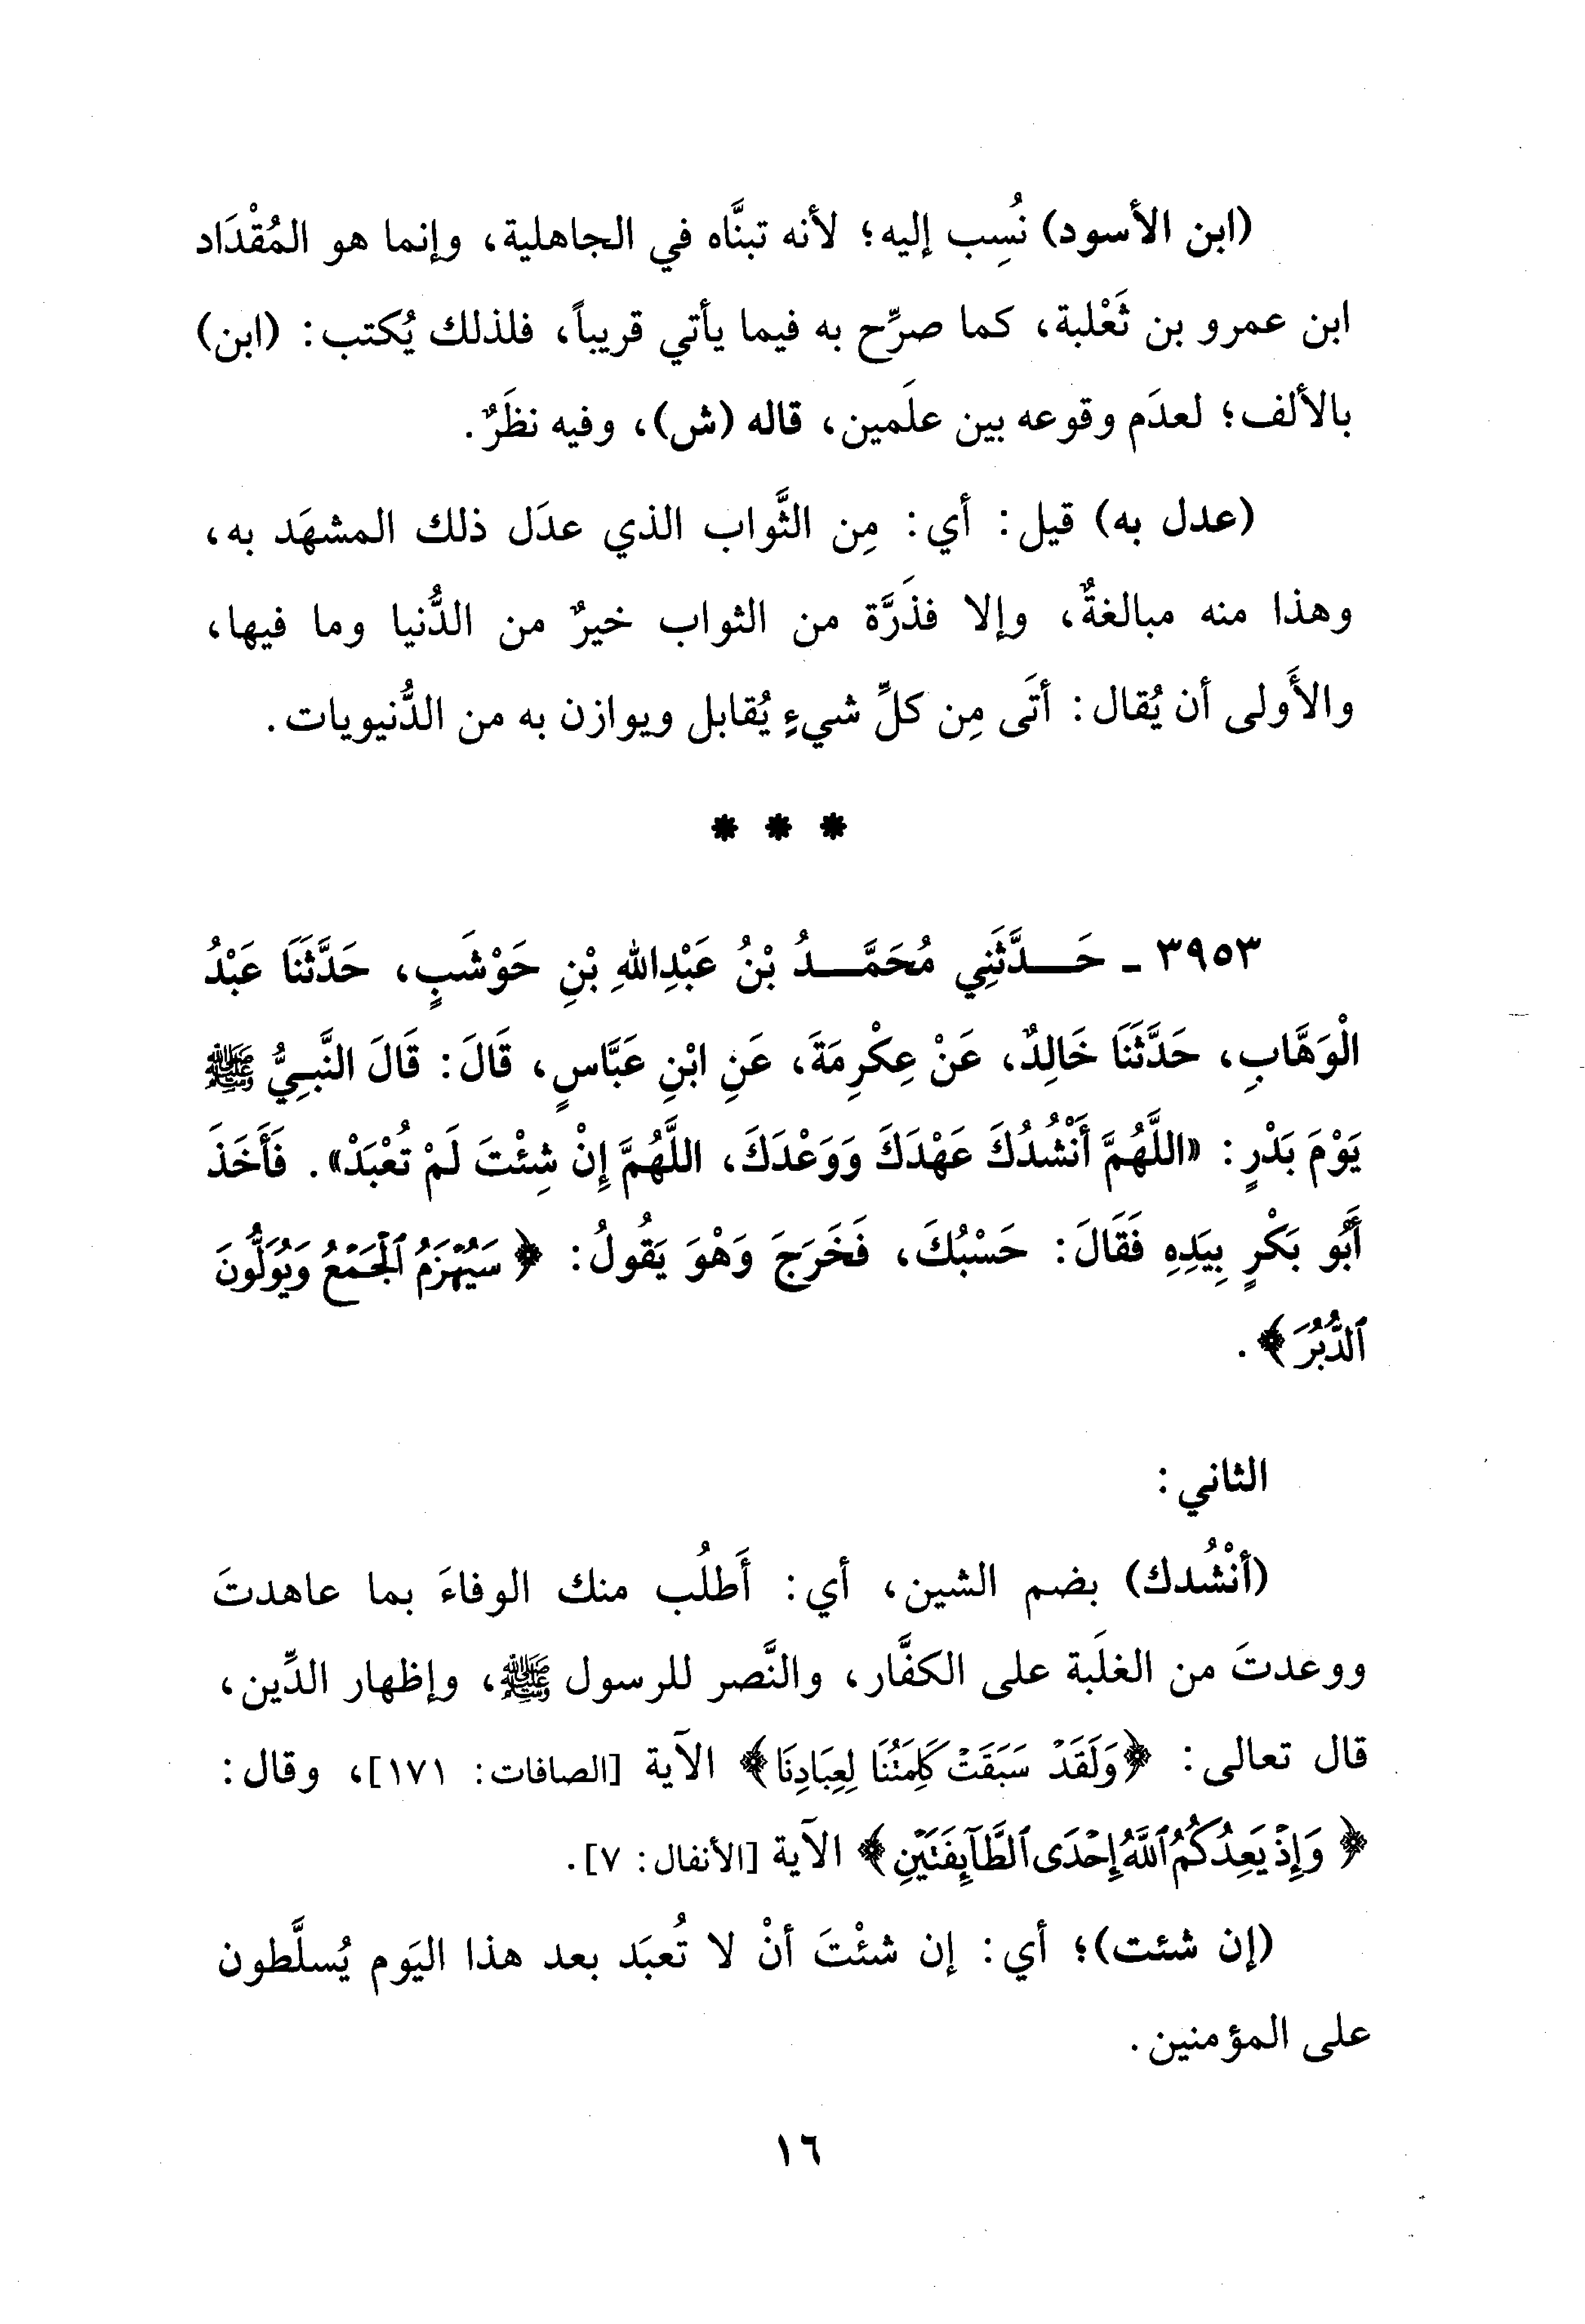 (ابن الأسود) نُسِب إليه؛ لأنه تبنَّاه في الجاهلية، وإنما هو المُقْدَاد
ابن عمرو بن ثَعْلبة، كما صرِّح به فيما يأتي قريباً، فلذلك يُكتب: (ابن)
بالألف؛ لعدَم وقوعه بين علَمين، قاله (ش)، وفيه نظَرٌ.
(عدل به) قيل: أي: مِن الثَّواب الذي عدَل ذلك المشهَد به،
وهذا منه مبالغةٌ، وإلا فذَرَّة من الثواب خيرٌ من الدُّنيا وما فيها،
والأَولى أن يُقال: أتَى مِن كلِّ شيءٍ يُقابل ويوازن به من الدُّنيويات.
* * *
٣٩٥٣ ـ حَـــدَّثَنِي مُحَمَّـــدُ بْنُ عَبْدِاللهِ بْنِ حَوْشَبٍ، حَدَّثَنَا عَبْدُ
الْوَهَّابِ، حَدَّثَنَا خَالِدٌ، عَنْ عِكْرِمَةَ، عَنِ ابْنِ عَبَّاسٍ، قَالَ: قَالَ النَّبِيُّ ﷺ
يَوْمَ بَدْرٍ: «اللَّهُمَّ أَنْشُدُكَ عَهْدَكَ وَوَعْدَكَ، اللَّهُمَّ إِنْ شِئْتَ لَمْ تُعْبَدْ». فَأَخَذَ
أَبُو بَكْرٍ بِيَدِهِ فَقَالَ: حَسْبُكَ، فَخَرَجَ وَهْوَ يَقُولُ: ﴿سَيُهْزَمُ ٱلْجَمْعُ وَيُوَلُّونَ
ٱلدُّبُرَ﴾.
الثاني:
(أنْشُدك) بضم الشين، أي: أَطلُب منك الوفاءَ بما عاهدتَ
ووعدتَ من الغلَبة على الكفَّار، والنَّصر للرسول ﷺ، وإظهار الدِّين،
قال تعالى: ﴿وَلَقَدْ سَبَقَتْ كَلِمَتُنَا لِعِبَادِنَا﴾ الآية [الصافات: ١٧١]، وقال:
﴿وَإِذْ يَعِدُكُمُ ٱللَّهُ إِحْدَى ٱلطَّآئِفَتَيْنِ﴾ الآية [الأنفال: ٧].
(إن شئت)؛ أي: إن شئْتَ أنْ لا تُعبَد بعد هذا اليَوم يُسلَّطون
على المؤمنين.
١٦